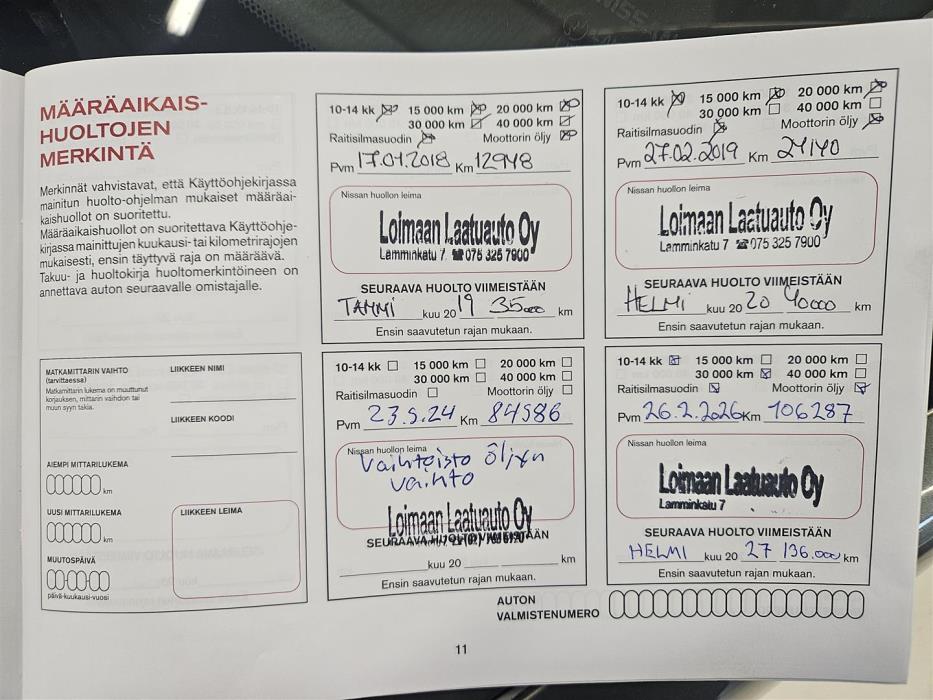 MÄÄRÄAIKAIS-
HUOLTOJEN
MERKINTÄ
Merkinnät vahvistavat, että Käyttöohjekirjassa
mainitun huolto-ohjelman mukaiset määräai-
kaishuollot on suoritettu.
Määräaikaishuollot on suoritettava Käyttöohje-
kirjassa mainittujen kuukausi- tai kilometrirajojen
mukaisesti, ensin täyttyvä raja on määräävä.
Takuu- ja huoltokirja huoltomerkintöineen on
annettava auton seuraavalle omistajalle.
10-14 kk 15 000 km 20 000 km
30 000 km 40 000 km
Raitisilmasuodin Moottorin öljy
Pvm 17.01.2018 Km 12948
Nissan huollon leima
Loimaan Laatuauto Oy
Lamminkatu 7 ☎ 075 325 7900
SEURAAVA HUOLTO VIIMEISTÄÄN
TAMMI kuu 20 19 35000 km
Ensin saavutetun rajan mukaan.
10-14 kk 15 000 km 20 000 km
30 000 km 40 000 km
Raitisilmasuodin Moottorin öljy
Pvm 27.02.2019 Km 24140
Nissan huollon leima
Loimaan Laatuauto Oy
Lamminkatu 7 ☎ 075 325 7900
SEURAAVA HUOLTO VIIMEISTÄÄN
HELMI kuu 20 20 40000 km
Ensin saavutetun rajan mukaan.
MATKAMITTARIN VAIHTO
(tarvittaessa)
Matkamittarin lukema on muuttunut
korjauksen, mittarin vaihdon tai
muun syyn takia.
LIIKKEEN NIMI
LIIKKEEN KOODI
AIEMPI MITTARILUKEMA
km
UUSI MITTARILUKEMA
km
MUUTOSPÄIVÄ
päivä-kuukausi-vuosi
LIIKKEEN LEIMA
10-14 kk 15 000 km 20 000 km
30 000 km 40 000 km
Raitisilmasuodin Moottorin öljy
Pvm 23.5.24 Km 84586
Nissan huollon leima
Vaihteisto öljyn
vaihto
Loimaan Laatuauto Oy
SEURAAVA HUOLTO VIIMEISTÄÄN
kuu 20 km
Ensin saavutetun rajan mukaan.
10-14 kk 15 000 km 20 000 km
30 000 km 40 000 km
Raitisilmasuodin Moottorin öljy
Pvm 26.2.2026 Km 106287
Nissan huollon leima
Loimaan Laatuauto Oy
Lamminkatu 7
SEURAAVA HUOLTO VIIMEISTÄÄN
HELMI kuu 20 27 136.000 km
Ensin saavutetun rajan mukaan.
AUTON
VALMISTENUMERO
11